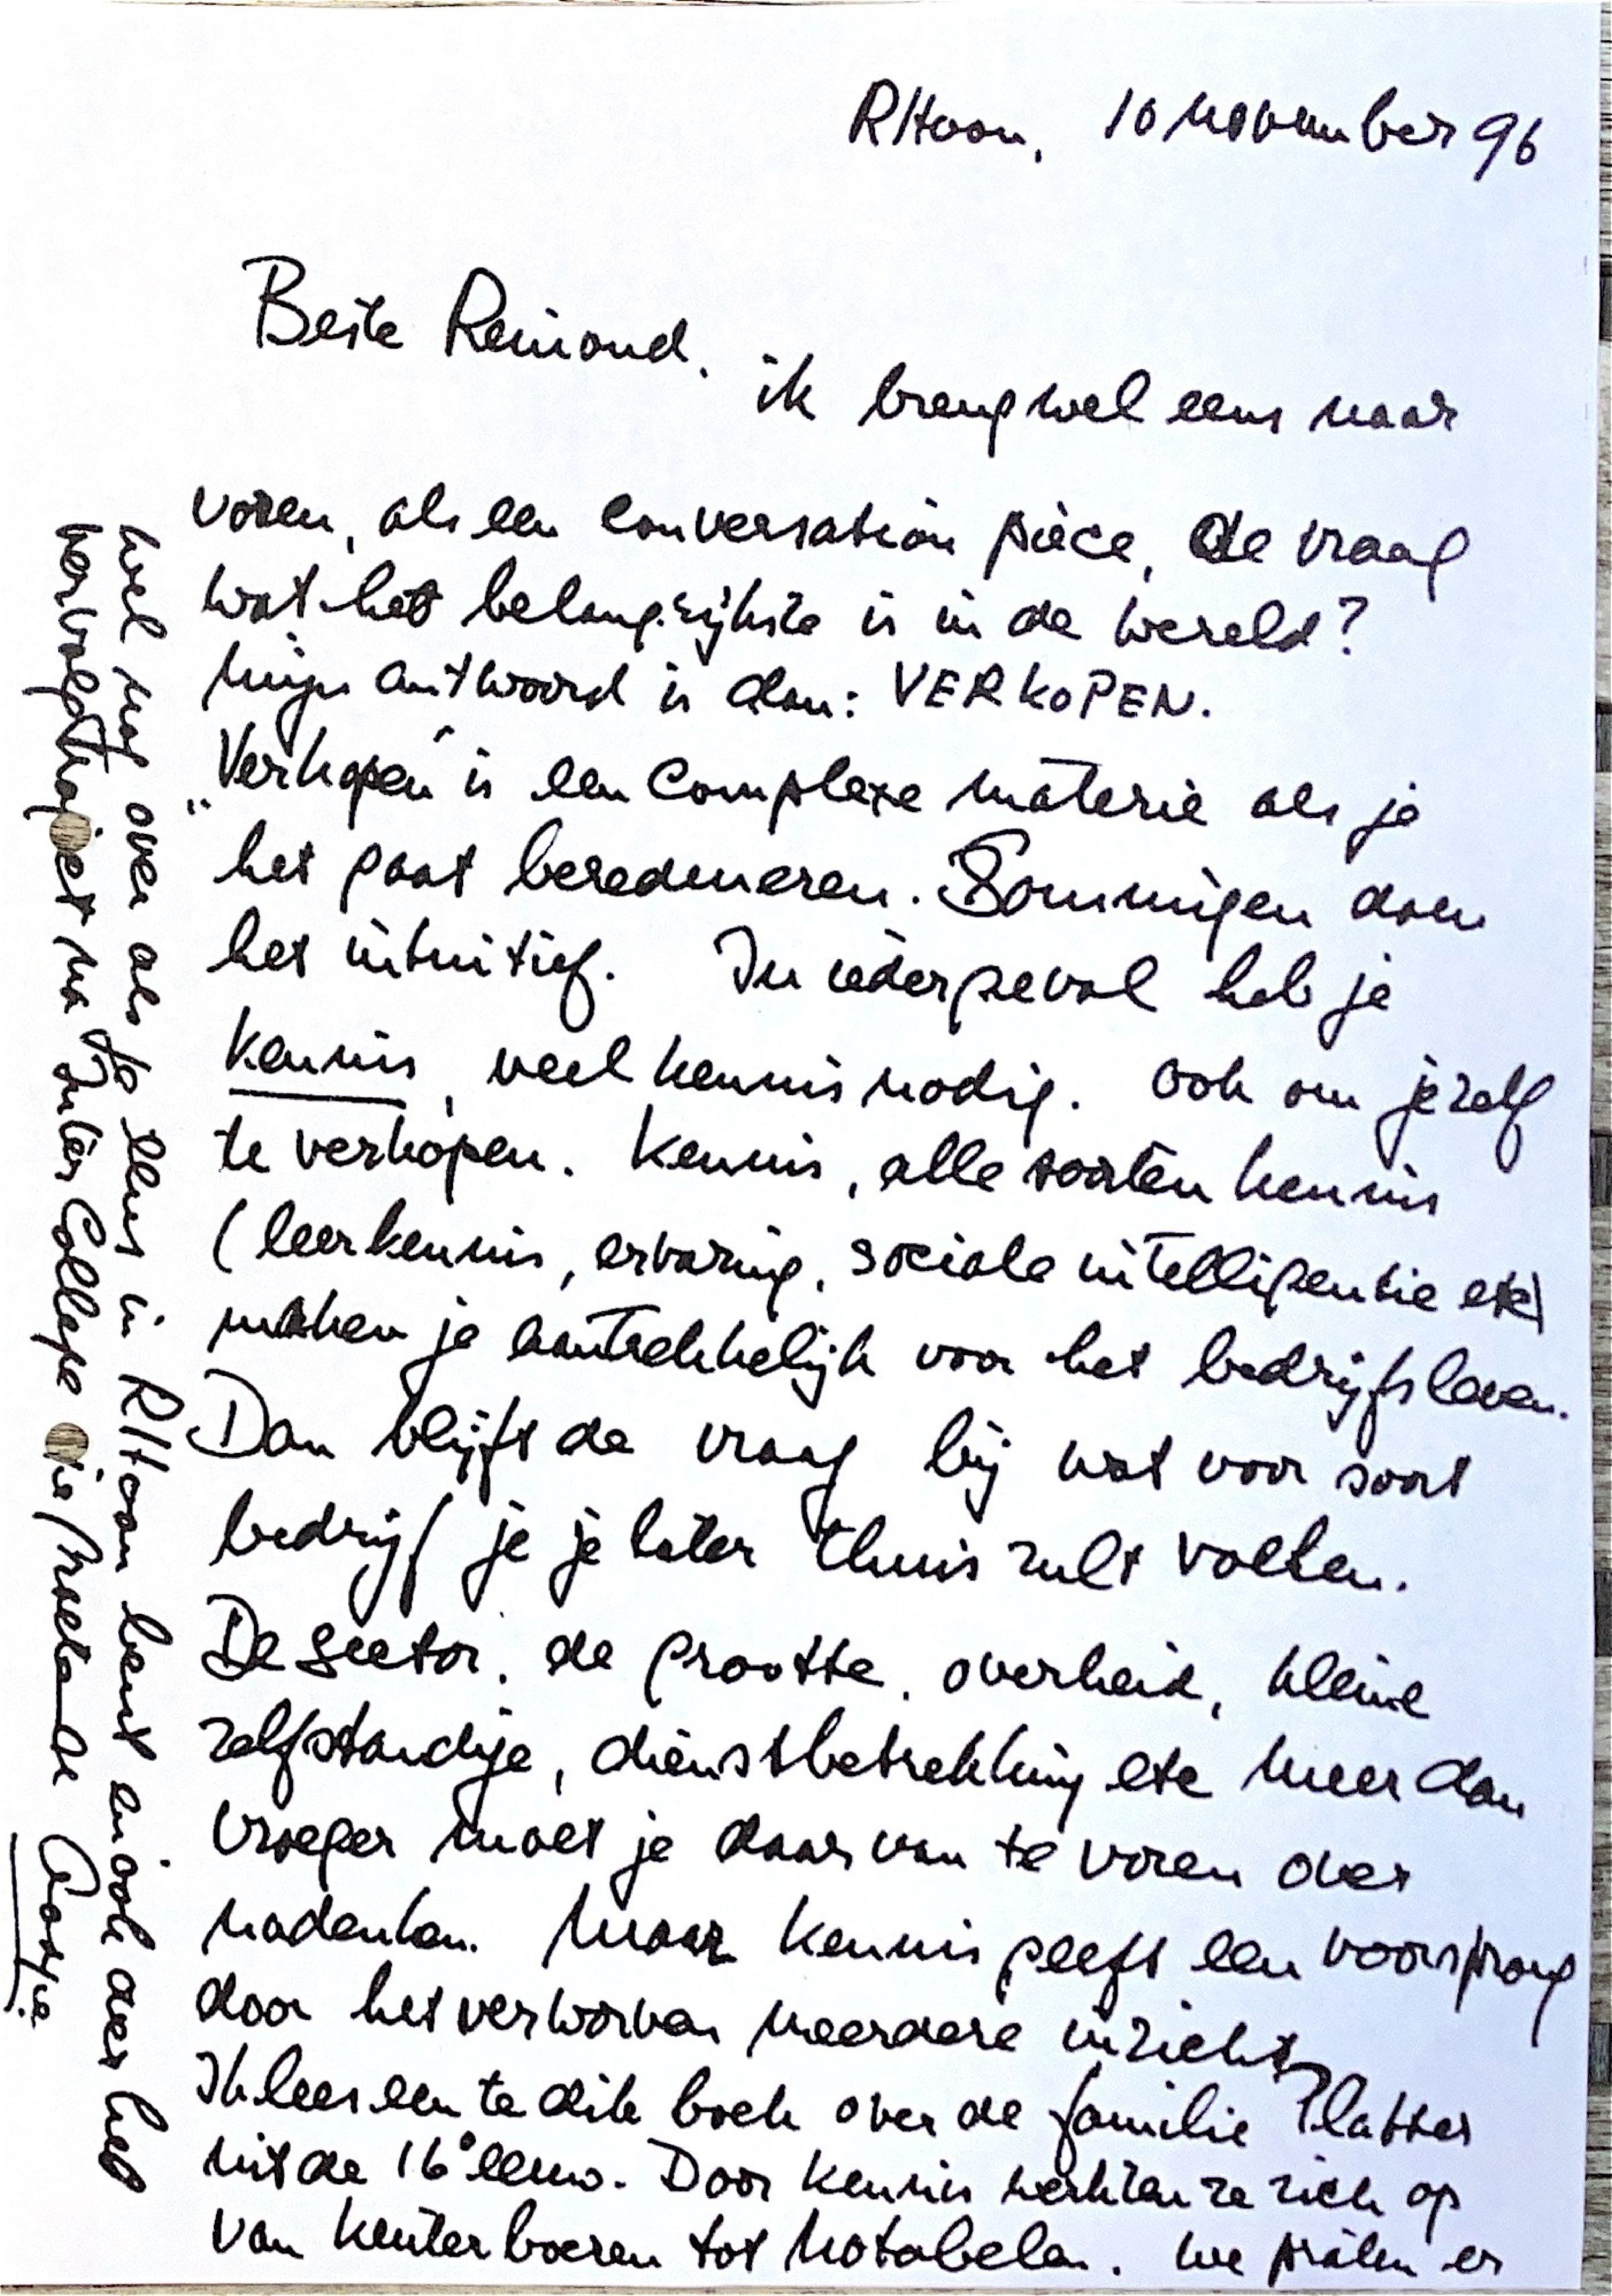 RHoon, 10 november 96
Beste Reinoud,
ik breng wel eens naar
voren, als een conversation piece, de vraag
wat het belangrijkste is in de wereld?
Mijn antwoord is dan: VERKOPEN.
„Verkopen" is een complexe materie als je
het gaat beredeneren. Sommigen doen
het intuitief. In ieder geval heb je
kennis, veel kennis nodig. Ook om jezelf
te verkopen. Kennis, alle soorten kennis
(leerkennis, ervaring, sociale intelligentie etc)
maken je aantrekkelijk voor het bedrijfsleven.
Dan blijft de vraag bij wat voor soort
bedrijf je je later thuis zult voelen.
De sector, de grootte, overheid, kleine
zelfstandige, dienstbetrekking etc meer dan
vroeger moet je daar van te voren over
nadenken. Maar kennis geeft een voorsprong
door het verworven meerdere inzicht,
Ik lees een te dik boek over de familie Platter
uit de 16e eeuw. Door kennis werkten ze zich op
van keuterboeren tot notabelen. We praten er
wel nog over als je eens in RHoon bent en ook over het
vervolgtraject na Inter College
groeten de